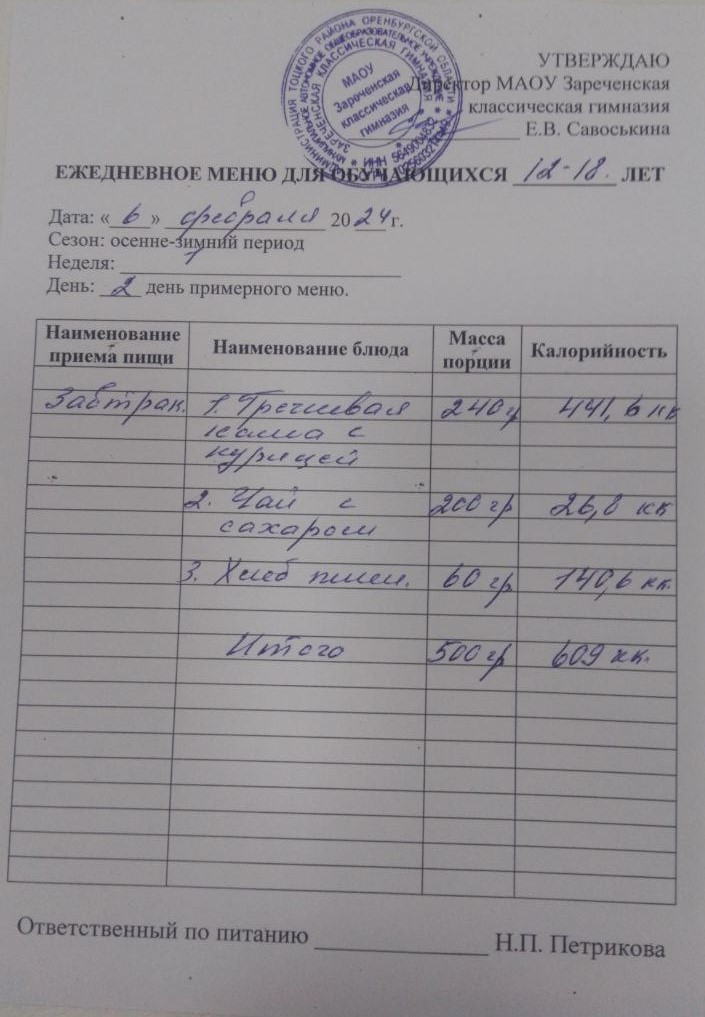 АДМИНИСТРАЦИЯ ТОЦКОГО РАЙОНА ОРЕНБУРГСКОЙ ОБЛАСТИ
МУНИЦИПАЛЬНОЕ АВТОНОМНОЕ ОБЩЕОБРАЗОВАТЕЛЬНОЕ УЧРЕЖДЕНИЕ
ЗАРЕЧЕНСКАЯ КЛАССИЧЕСКАЯ ГИМНАЗИЯ
МАОУ
Зареченская
классическая
гимназия
УТВЕРЖДАЮ
Директор МАОУ Зареченская
классическая гимназия
Е.В. Савоськина
ЕЖЕДНЕВНОЕ МЕНЮ ДЛЯ ОБУЧАЮЩИХСЯ 12-18. ЛЕТ
Дата: «6» февраля 2024 г.
Сезон: осенне-зимний период
Неделя: 1
День: 2 день примерного меню.
Наименование приема пищи Наименование блюда Масса порции Калорийность
Завтрак. 1. Гречневая 240 г 441,6 кк
каша с
курицей
2. Чай с 200 гр 26,8 кк
сахаром
3. Хлеб пшен. 60 гр 140,6 кк.
Итого 500 гр 609 кк.
Ответственный по питанию Н.П. Петрикова